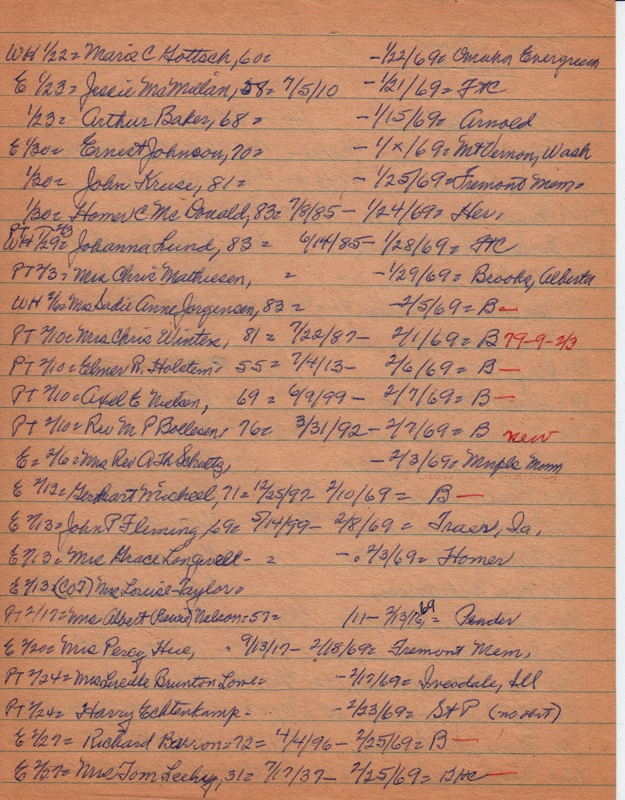 WH 1/22= Marie C Gottsch, 60= -1/22/69= Omaha Evergreen
E 1/23= Jessie McMullan, 58= 7/5/10 -1/21/69= FHC
1/23= Arthur Baker, 68= -1/15/69= Arnold
E 1/30= Ernest Johnson, 70= -1/x/69= Mt Vernon, Wash
1/30= John Kruse, 81= -1/25/69= Fremont Mem=
1/30= Homer C McDonald, 83= 7/8/85- 1/24/69= Her,
PT 2/3
WH 1/29= Johanna Lund, 83= 6/14/85- 1/28/69= HC
PT 2/3= Mrs Chris Mathiesen, = -1/29/69= Brooks, Alberta
WH 2/6= Mrs Sadie Anne Jorgensen, 83= -2/5/69= B-
PT 2/10= Mrs Chris Winters, 81= 7/22/87- 2/1/69= B 79-9-2/3
PT 2/10= Elmer R. Holstein= 55= 7/4/13- 2/6/69= B-
PT 2/10= Axel E Nielsen, 69= 6/9/99- 2/7/69= B-
PT 2/10= Rev M P Boelesen, 76= 3/31/92- 2/7/69= B new
E= 2/6= Mrs Rev A Th Schultz, -2/3/69= Mem
E 2/13= Gerhart Micheel, 71= 12/25/97- 2/10/69= B-
E 2/13= John P Fleming, 69= 5/14/99- 2/8/69= Traer, Ia,
E 2/13= Mrs Grace Longwell- = -. 2/3/69= Homer
E 2/13 (COF) Mrs Louise Taylor=
PT 2/17= Mrs Albert Nelson= 57= /11- 2/13/69= Pender
E 2/20= Mrs Percy Hue, . 9/13/17- 2/18/69= Fremont Mem,
PT 2/24= Mrs Lucille Brunton Lowe= -2/17/69= Ivesdale, Ill
PT 2/24= Harry Echtenkamp= -2/23/69= St P (no vert)
E 2/27= Richard Barron= 72= 4/4/96- 2/25/69= B-
E 2/27= Mrs Tom Leehy, 31= 7/17/37- 2/25/69= BHC-